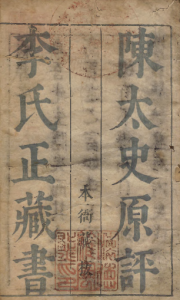 陳太史原評
李氏正藏書
本衙藏板